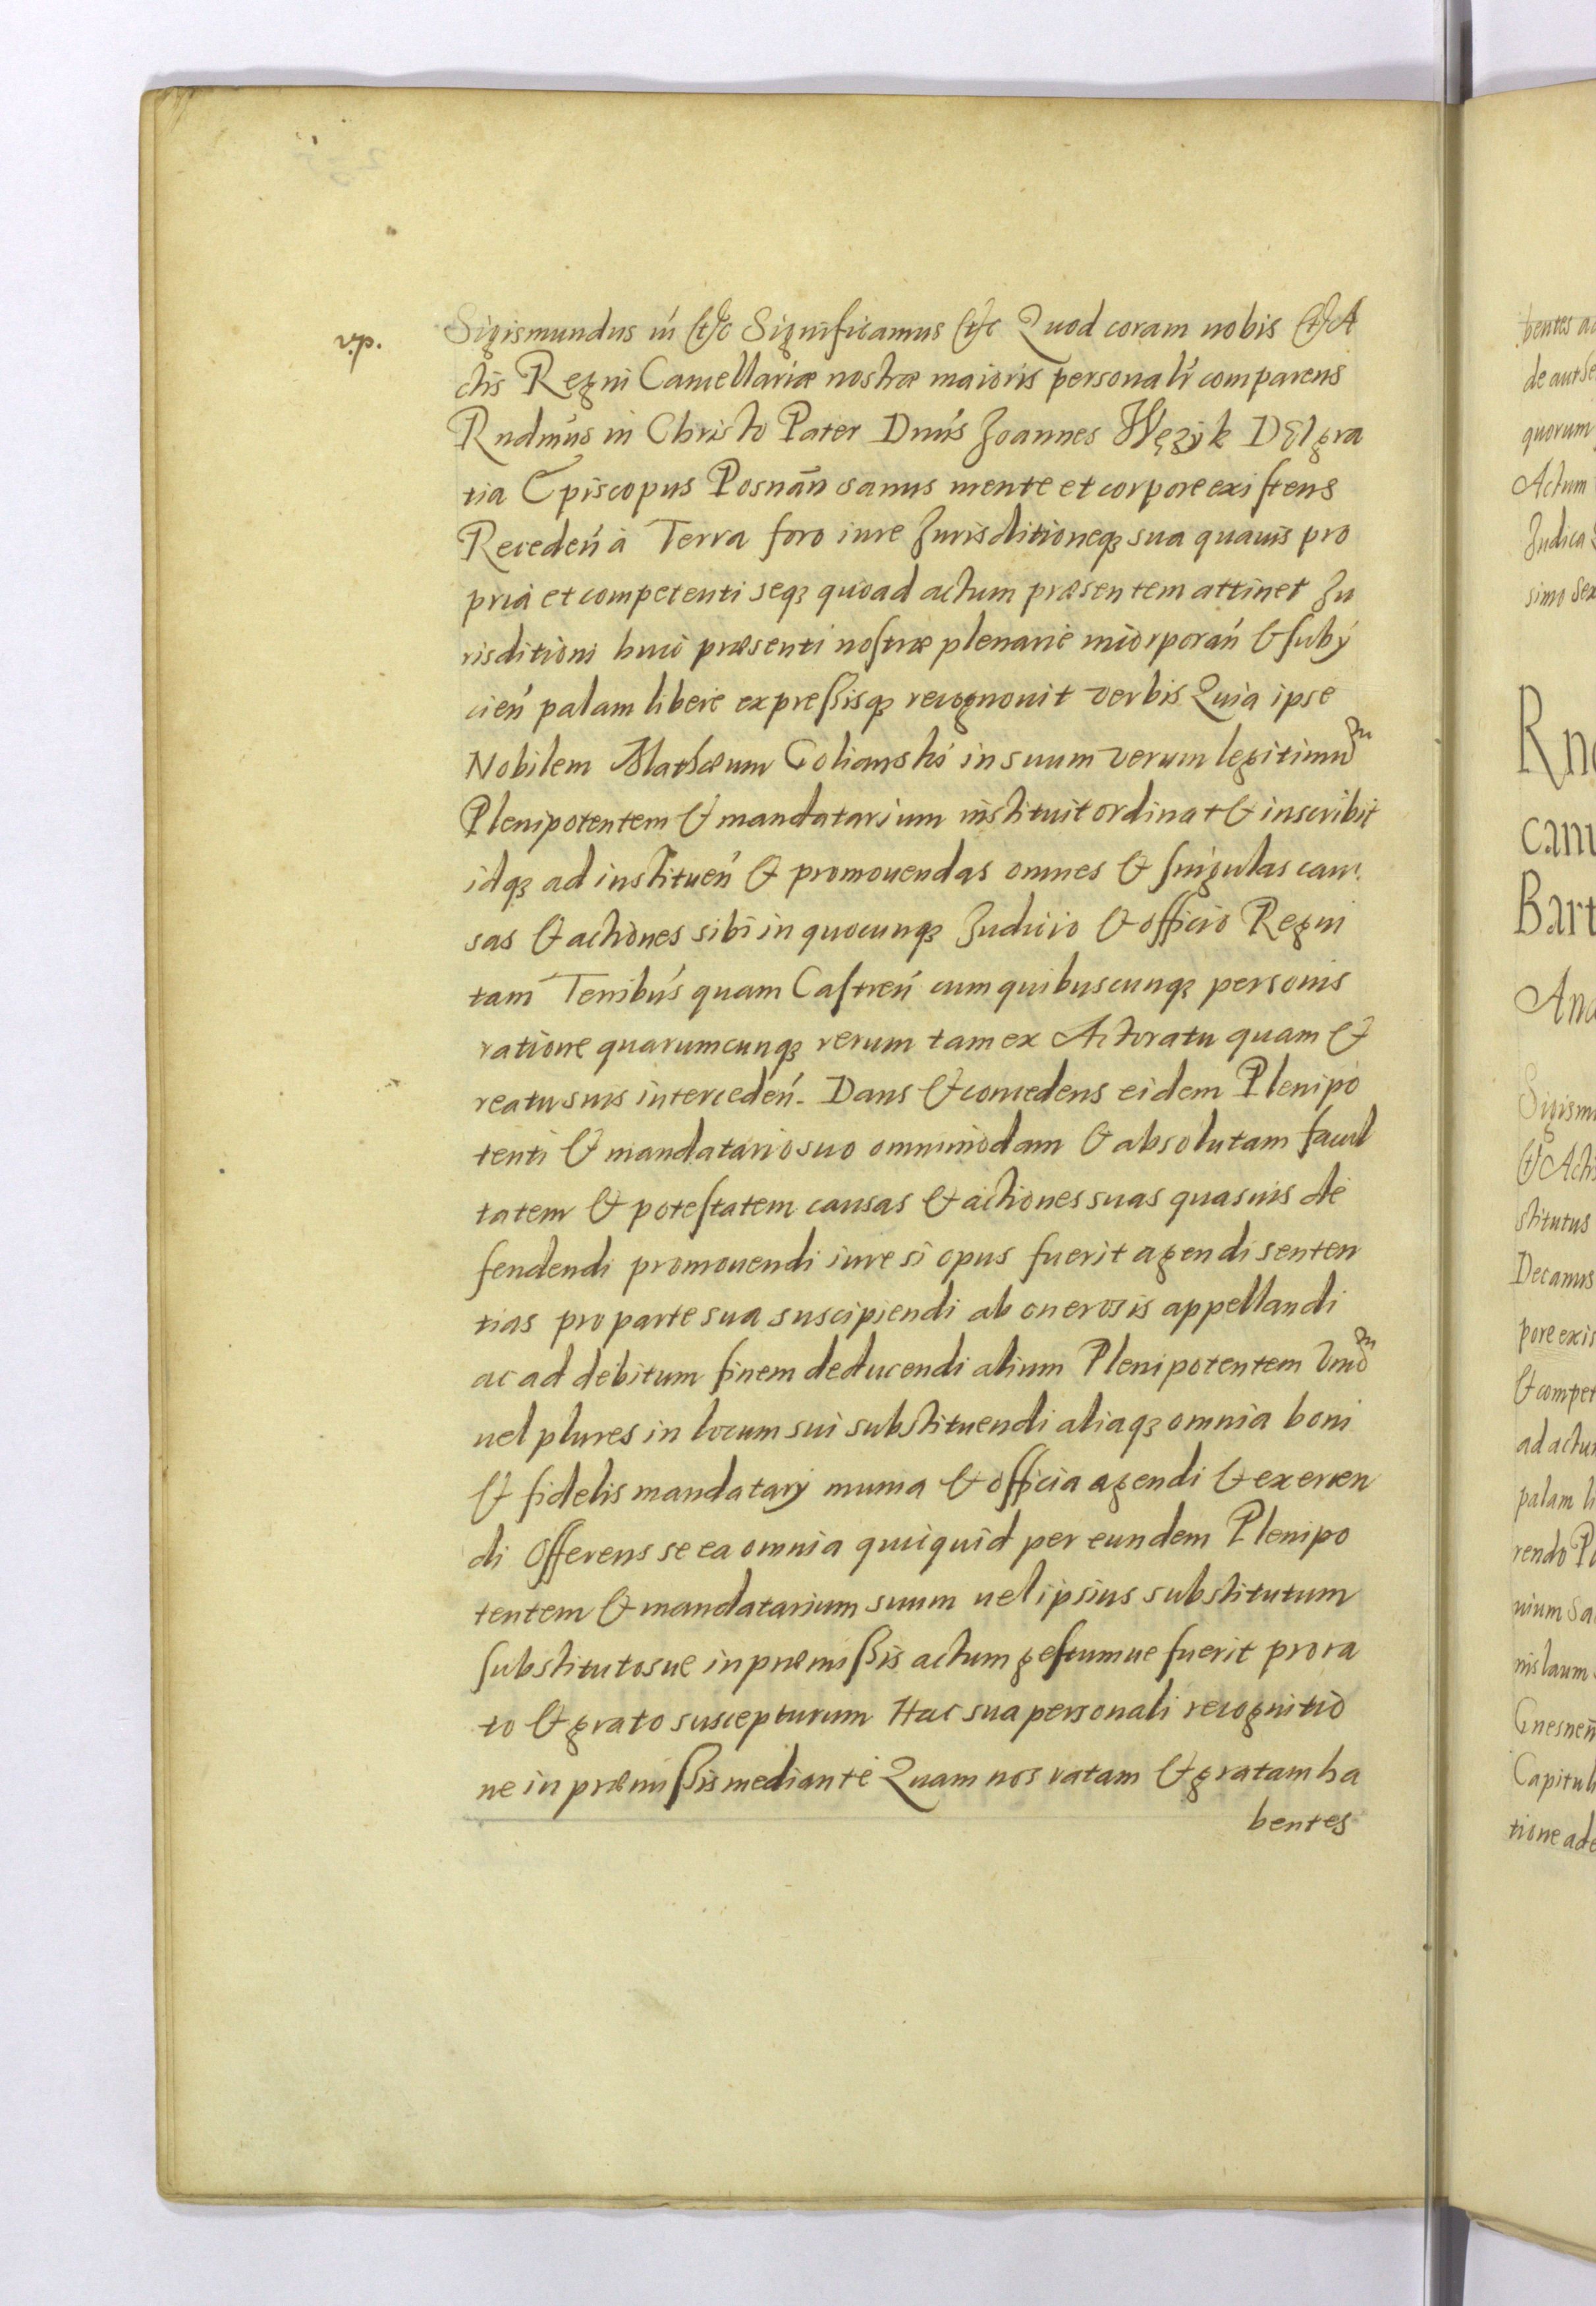 Sigismundus iij &c Significamus &c Quod coram nobis & A
ctis Regni Cancellariæ nostræ maioris personalr comparens
Rndmus in Christo Pater Dnus Joannes Wężyk Dei gra
tia Episcopus Posnān sanus mente et corpore existens
Receden à Terra foro iure Jurisditioneq sua quauis pro
pria et competenti seq quoad actum præsentem attinet Ju
risditioni huic præsenti nostræ plenarie incorporan & subij
cien palam libere expressisq recognouit verbis Quia ipse
Nobilem Mathæum Golianski in suum verum legitimū
Plenipotentem & mandatarium instituit ordinat & inscribit
idq ad instituen & promouendas omnes & singulas cau
sas & actiones sibi in quocunq Judicio & officio Regni
tam Terribus quam Castren cum quibuscunq personis
ratione quarumcunq rerum tam ex Actoratu quam &
reatu suis interceden. Dans & concedens eidem Plenipo
tenti & mandatario suo omnimodam & absolutam facul
tatem & potestatem causas & actiones suas quasuis de
fendendi promouendi iure si opus fuerit agendi senten
tias pro parte sua suscipiendi ab onerosis appellandi
ac ad debitum finem deducendi alium Plenipotentem vnū
uel plures in locum sui substituendi aliaq omnia boni
& fidelis mandatarij munia & officia agendi & exercen
di Offerens se ea omnia quicquid per eundem Plenipo
tentem & mandatarium suum uel ipsius substitutum
substitutosue in præmissis actum gestumue fuerit pro ra
to & grato suscepturum Hac sua personali recognitio
ne in præmissis mediante Quam nos ratam & gratam ha
bentes
bentes
de aut
quorum
Actum
Judica
simo
Rn
can
Bart
Sigism
& Actis
stitutus
Decanus
pore exis
& compet
ad actu
palam li
rendo
nium
nislaum
Gnesnen
Capituli
tione ad